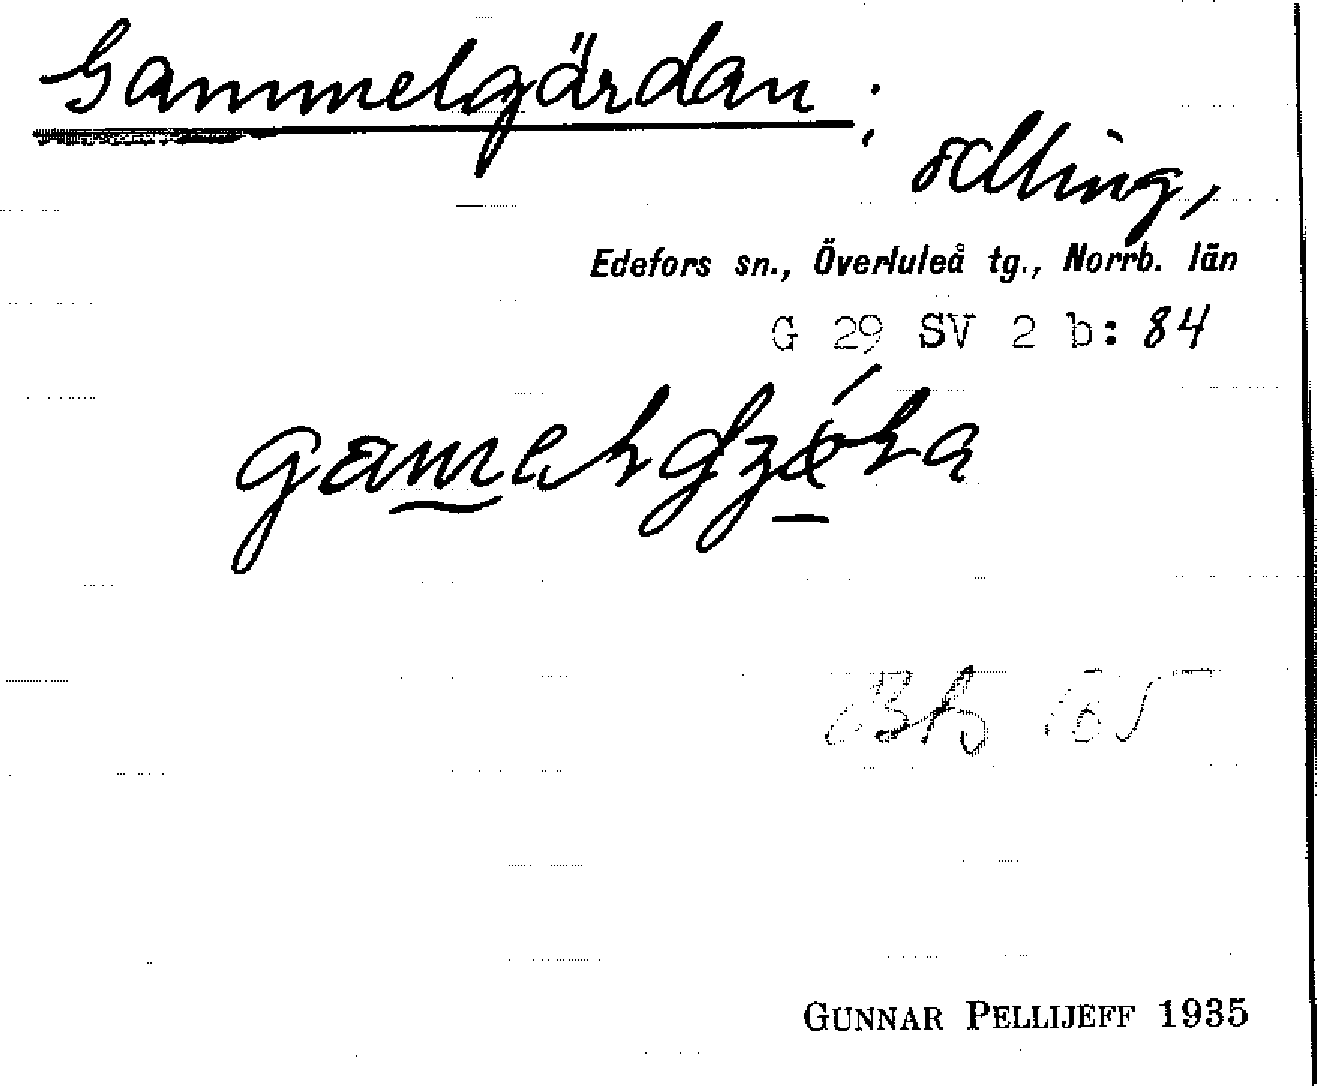 Gammelgärdan:
odling,
Edefors sn., Överluleå tg., Norrb. län
G 29 SV 2 b: 84
GUNNAR PELLIJEFF 1935